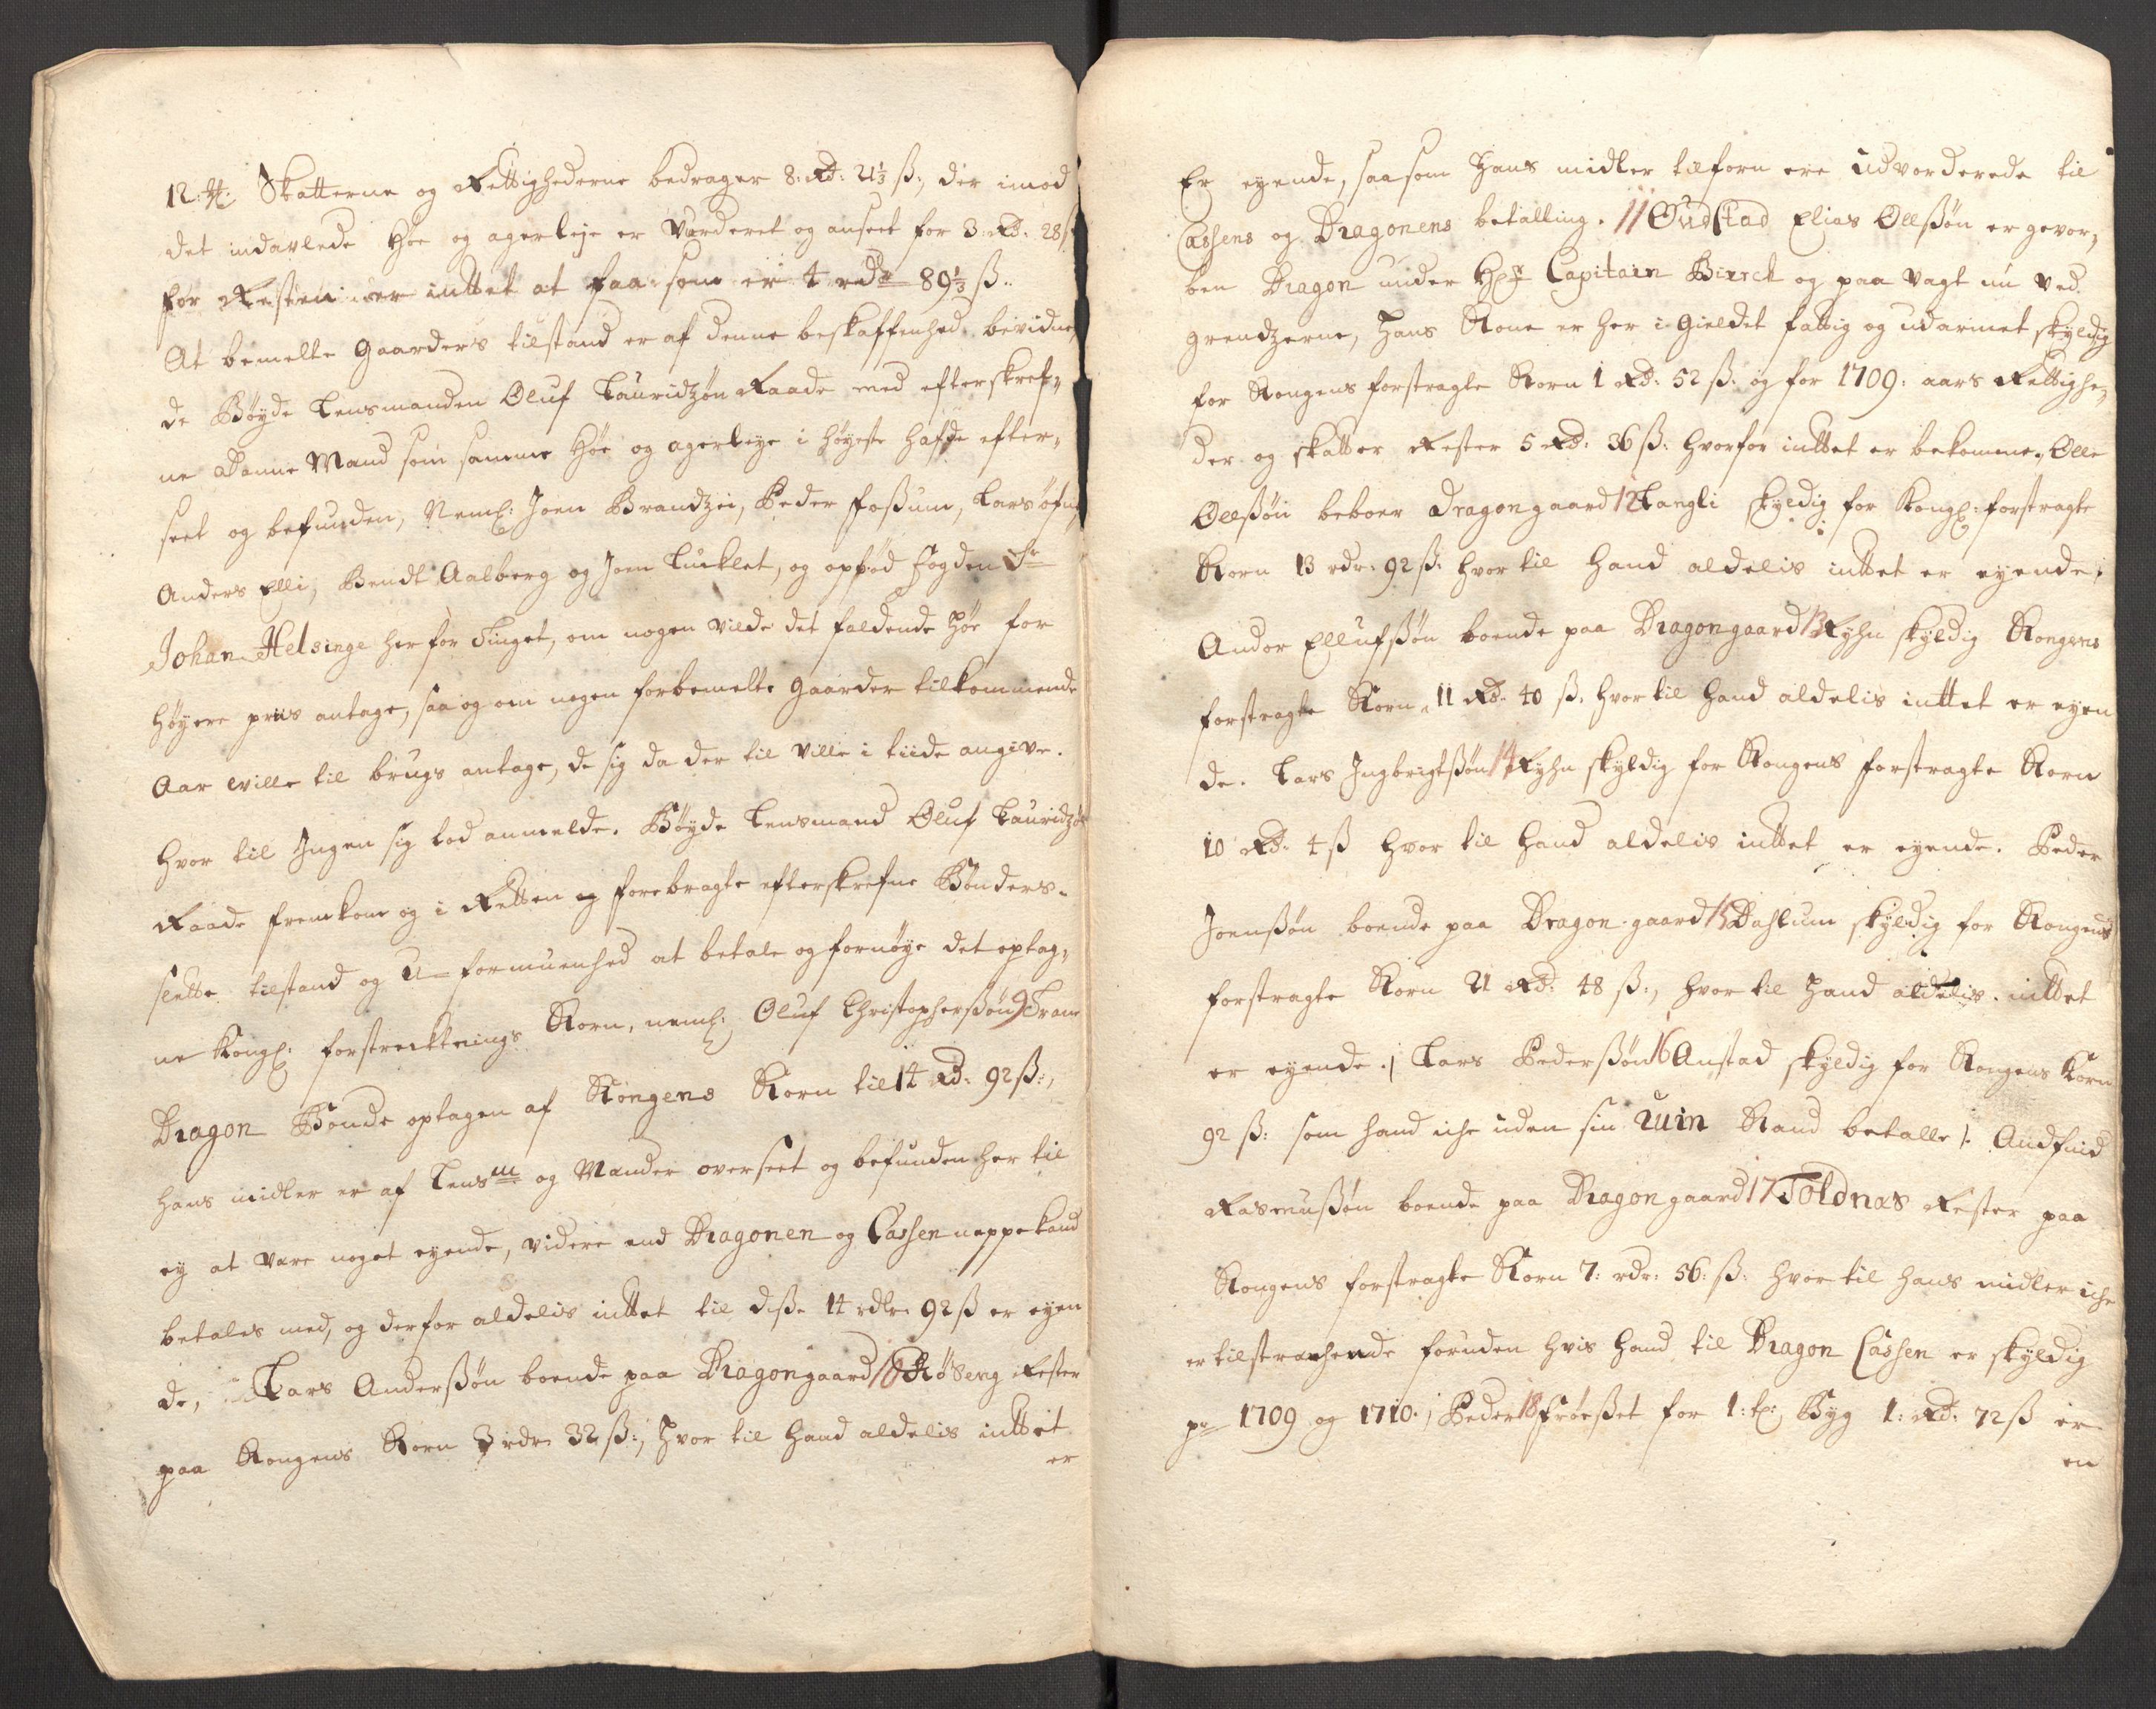 12: ₶: Skatterne og Rettighederne bedrager 8: Rd: 21⅓ ß:, der imod
det indavlede Høe og agerleje er Vurderet og anseet for 3: Rd: 28 ß
for Resten er inttet at faa som er 4 rdr 89⅓ ß..
At bemelte Gaarders tilstand er af denne beskaffenhed, bevidne,
de Bøyde Lensmanden Oluf Lauridzøn Raade med efterskref„
ne Danne Mand som samme Høe og agerleye i høyeste hafde efter„
seet og befunden, Neml: Joen Brandzei, Peder Foßum, Lars Øfne
Anders Elli, Bendt Aalberg og Joen Lucklet, og opbød Fogden Sr
Johan Helsinge her for Tinget, om nogen vilde det faldende Høe for
høyere priis antage, saa og om nogen forbemelte gaarder tilkommende
Aar wille til brugs antage, de sig da der til ville i tiide angive.
hvor til Ingen sig lod anmelde. Bøyde Lensmand Oluf Lauridzøn
Raade fremkom og i Retten og forebragte efterskrefne Bønders
slette tilstand og U-formuenhed at betale og fornøye det optag„
ne Kongl: forstrecktnings Korn, neml: Oluf Christopherßøn 9 Trane
Dragon Bonde optagen af Kongens Korn til 14 Rd: 92 ß:,
hans midler er af Lensm og Mander overseet og befunden her til
ey at vare noget eyende, videre end Dragonen og Cassen neppe kand
betales med, og derfor aldelis inttet til diße 14 rdlr 92 ß er eyen
de, Lars Anderßøn boende paa Dragongaard 10 Høseng Rester
paa Kongens Korn 3 rdr 32 ß:, hvor til hand aldelis inttet
er
Er eyende, saasom Hans midler tilforn ere Udvorderede til
Cassens og Dragonens betalling. 11 Gudstad Elias Olßøn er gevor„
ben Dragon under Hr Capitain Bierck og paa Vagt nu ved
grendzerne, Hans Kone er her i Gieldet fattig og udarmet skyldig
for Kongens forstragte Korn 1 Rd: 52 ß: og for 1709: aars Rettighe„
der og skatter Rester 5 Rd: 36 ß: hvorfor inttet er bekomme., Olle
Olßøn beboer Dragongaard 12 Langli skyldig for Kongl: forstragte
Korn 13 rdr: 92 ß: hvor til hand aldelis inttet er eyende.
Andor Ellufßøn boende paa Dragongaard 13 Ryhn skyldig Kongens
forstragte Korn 11 Rd: 40 ß, hvor til hand aldelis inttet er eyen
de. Lars Ingbrigtßøn 14 Ryhn skyldig for Kongens forstragte Korn
10 Rd: 4 ß hvor til hand aldelis inttet er eyende. Peder
Joenßøn boende paa Dragon-gaard 15 Dahlum skyldig for Kongens
forstragte Korn 21 Rd: 48 ß:, hvor til hand aldelis inttet
er eyende. Lars Pederßøn 16 Anstad skyldig for Kongens Korn
92 ß: som hand iche uden sin ruin Kand betalle. Audfind
Rasmußøn boende paa Dragongaard 17 Toldnæs Rester paa
Kongens forstragte Korn 7: rdr: 56: ß: hvor til hans midler iche
er tilstrachende foruden hvis hand til Dragon Cassen er skyldig
pr 1709 og 1710., Peder 18 Frøeßet for 1: t: Byg 1: Rd: 72 ß er
en